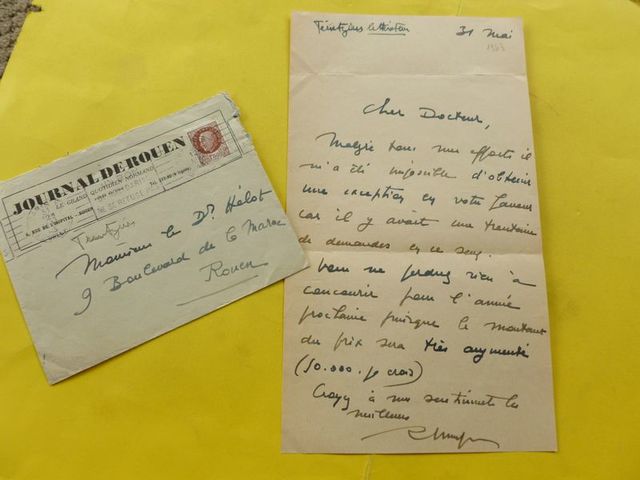 JOURNAL DE ROUEN
LE GRAND QUOTIDIEN NORMAND
Monsieur le Dr Hélot
9 Boulevard de la Marne
Rouen
31 Mai
1943
Cher Docteur,
Malgré tous mes efforts il
m'a été impossible d'obtenir
une exception en votre faveur
car il y avait une trentaine
de demandes en ce sens.
Vous ne perdrez rien à
concourir pour l'année
prochaine puisque le montant
du prix sera très augmenté
(10.000. je crois)
Croyez à mes sentiments les
meilleurs